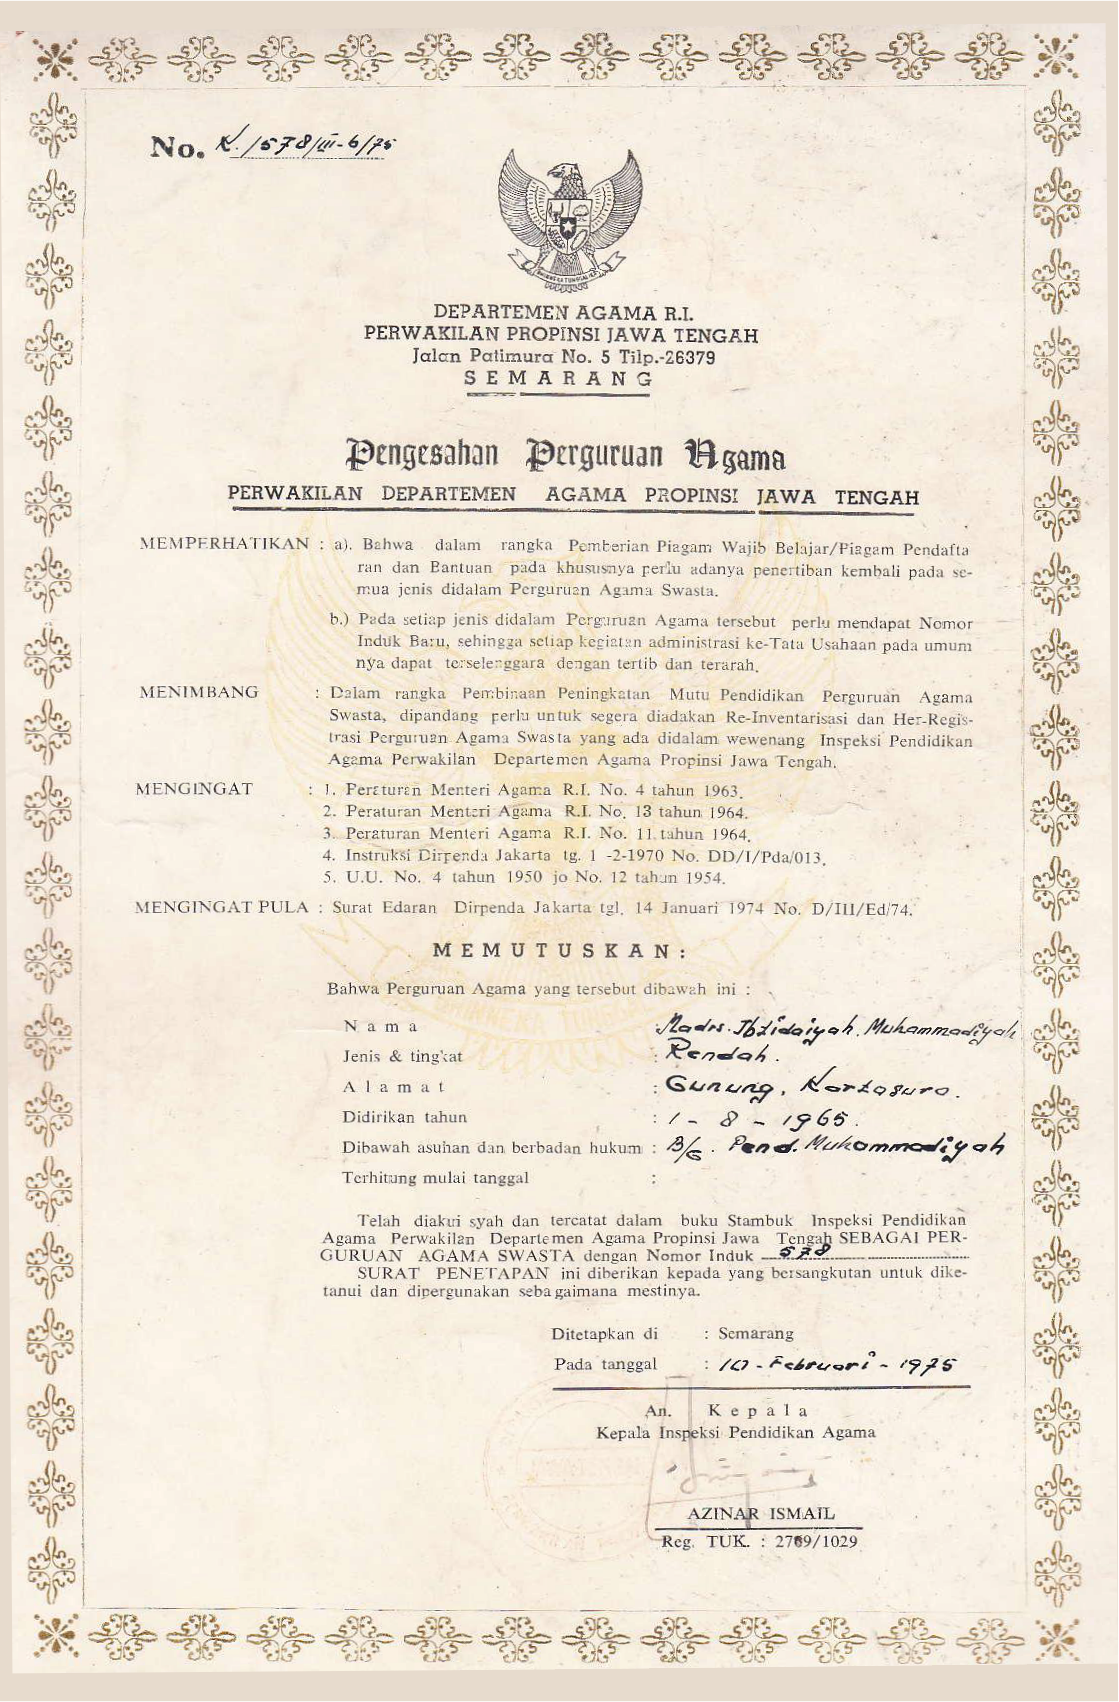 No. K./578/III-6/75
BHINNEKA TUNGGAL IKA
DEPARTEMEN AGAMA R.I.
PERWAKILAN PROPINSI JAWA TENGAH
Jalan Patimura No. 5 Tilp.-26379
SEMARANG
Pengesahan Perguruan Agama
PERWAKILAN DEPARTEMEN AGAMA PROPINSI JAWA TENGAH
MEMPERHATIKAN : a). Bahwa dalam rangka Pemberian Piagam Wajib Belajar/Piagam Pendafta
ran dan Bantuan pada khususnya perlu adanya penertiban kembali pada se-
mua jenis didalam Perguruan Agama Swasta.
b.) Pada setiap jenis didalam Perguruan Agama tersebut perlu mendapat Nomor
Induk Baru, sehingga setiap kegiatan administrasi ke-Tata Usahaan pada umum
nya dapat terselenggara dengan tertib dan terarah.
MENIMBANG : Dalam rangka Pembinaan Peningkatan Mutu Pendidikan Perguruan Agama
Swasta, dipandang perlu untuk segera diadakan Re-Inventarisasi dan Her-Regis-
trasi Perguruan Agama Swasta yang ada didalam wewenang Inspeksi Pendidikan
Agama Perwakilan Departemen Agama Propinsi Jawa Tengah.
MENGINGAT : 1. Peraturan Menteri Agama R.I. No. 4 tahun 1963.
2. Peraturan Menteri Agama R.I. No. 13 tahun 1964.
3. Peraturan Menteri Agama R.I. No. 11 tahun 1964.
4. Instruksi Dirpenda Jakarta tg. 1 -2-1970 No. DD/I/Pda/013.
5. U.U. No. 4 tahun 1950 jo No. 12 tahun 1954.
MENGINGAT PULA : Surat Edaran Dirpenda Jakarta tgl. 14 Januari 1974 No. D/III/Ed/74.
MEMUTUSKAN :
Bahwa Perguruan Agama yang tersebut dibawah ini :
Nama : Madrs. Ibtidaiyah. Muhammadiyah
Jenis & tingkat : Rendah.
Alamat : Gunung, Kartasura.
Didirikan tahun : 1 - 8 - 1965.
Dibawah asuhan dan berbadan hukum : B/G. Pend. Muhammadiyah
Terhitung mulai tanggal :
Telah diakui syah dan tercatat dalam buku Stambuk Inspeksi Pendidikan
Agama Perwakilan Departemen Agama Propinsi Jawa Tengah SEBAGAI PER-
GURUAN AGAMA SWASTA dengan Nomor Induk 578
SURAT PENETAPAN ini diberikan kepada yang bersangkutan untuk dike-
tanui dan dipergunakan sebagaimana mestinya.
Ditetapkan di : Semarang
Pada tanggal : 10 - Februari - 1975
An. Kepala
Kepala Inspeksi Pendidikan Agama
AZINAR ISMAIL
Reg. TUK. : 2769/1029